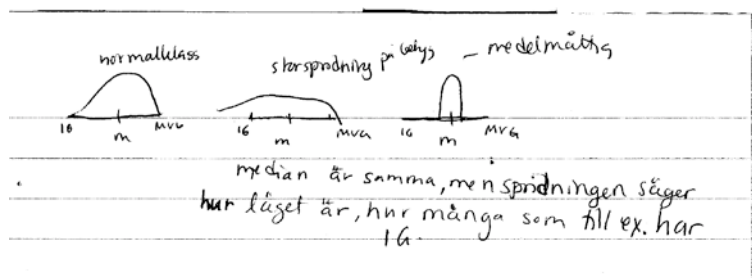 normalklass
stor spridning på betyg
- medelmåttig
IG m MVG
IG m MVG
IG m MVG
median är samma, men spridningen säger
hur läget är, hur många som till ex. har
IG.